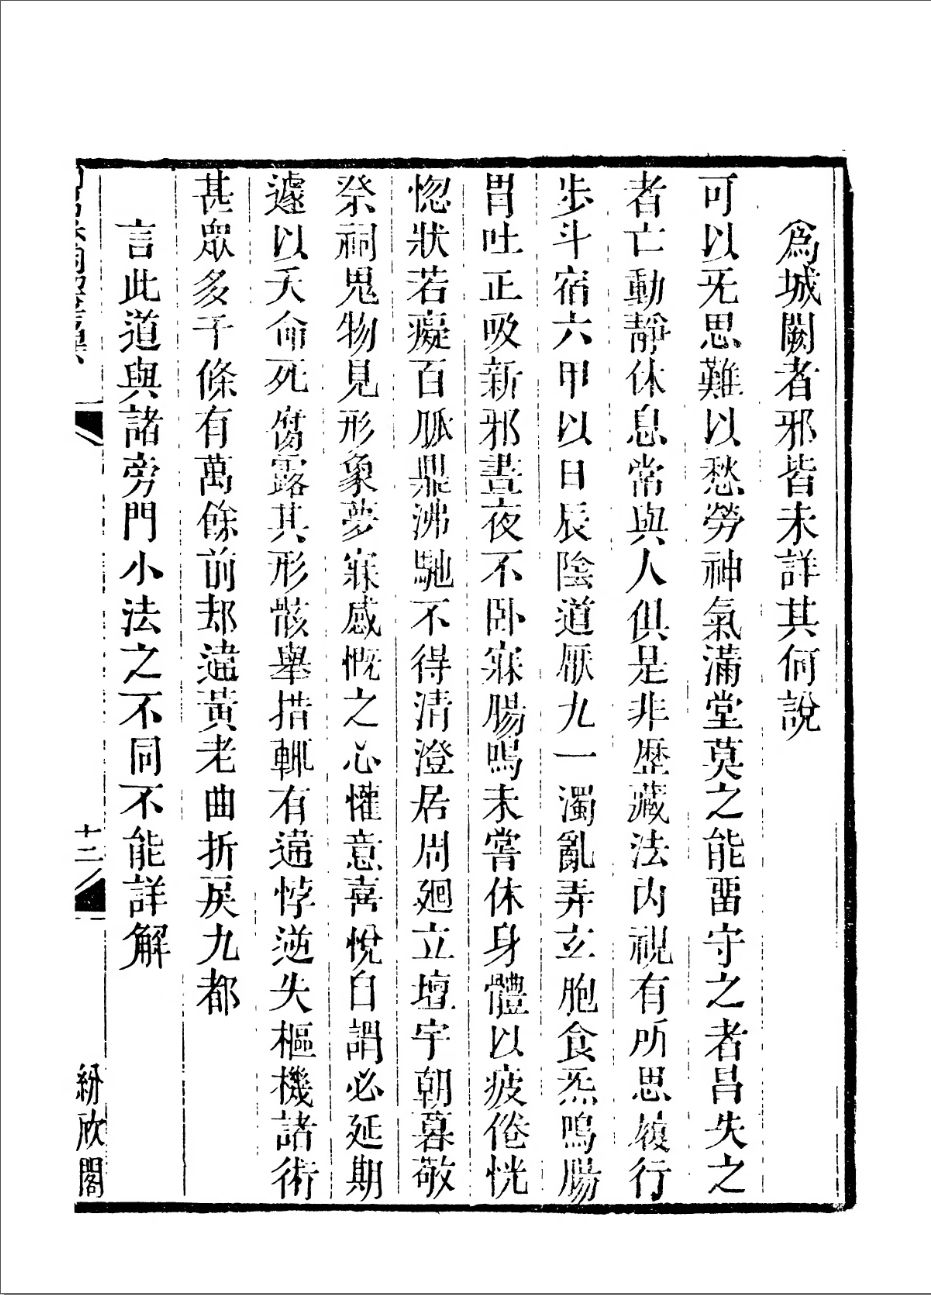 為城闕者邪皆未詳其何說
可以旡思難以愁勞神氣滿堂莫之能畱守之者昌失之
者亡動靜休息常與人俱是非歷藏法內視有所思履行
步斗宿六甲以日辰陰道厭九一濁亂弄玄胞食炁鳴腸
胃吐正吸新邪晝夜不卧寐腸鳴未嘗休身體以疲倦恍
惚狀若癡百脈鼎沸馳不得清澄居周廻立壇宇朝暮敬
祭祠鬼物見形象夢寐感慨之心懽意喜悅自謂必延期
遽以夭命死腐露其形骸舉措輒有違悖逆失樞機諸術
甚眾多千條有萬餘前却違黃老曲折戾九都
言此道與諸旁門小法之不同不能詳解
十二
紛欣閣